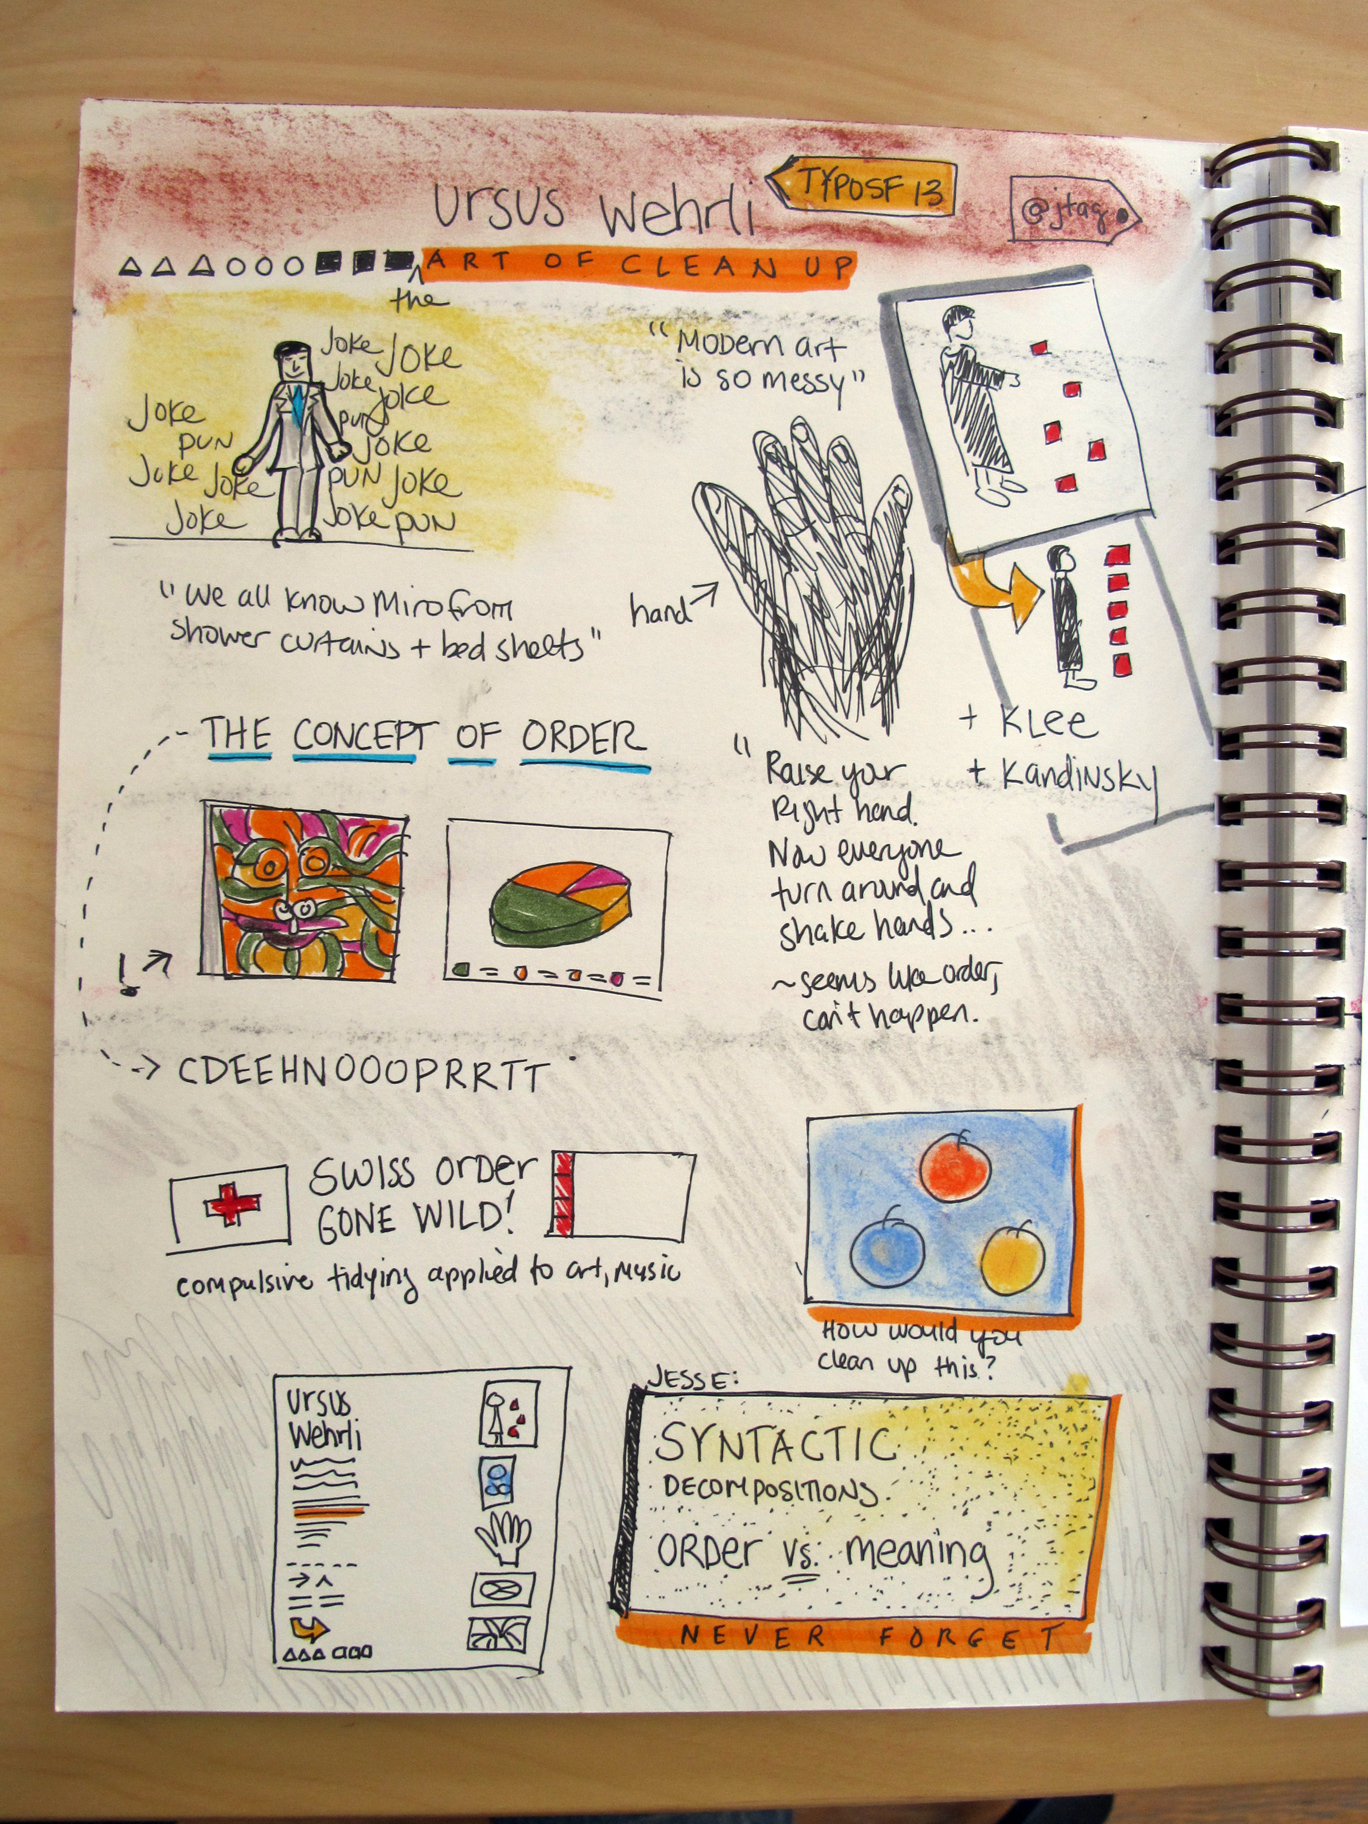 ursus wehrli
TYPOSF 13
@jtag
the
ART OF CLEAN UP
Joke JOKE
Joke Joke
Joke
pun
pun
Joke
Joke Joke
PUN Joke
Joke
Joke pun
"Modern art
is so messy"
"we all know Miro from
shower curtains + bed sheets"
hand
+ KLEE
+ Kandinsky
THE CONCEPT OF ORDER
"Raise your
Right hand.
Now everyone
turn around and
shake hands...
~seems like order,
can't happen.
CDEEHNOOOPRRTT
SWISS Order
GONE WILD!
compulsive tidying applied to art, music
How would you
clean up this?
ursus
Wehrli
JESSE:
SYNTACTIC
DECOMPOSITIONS.
ORDER vs. meaning
NEVER FORGET